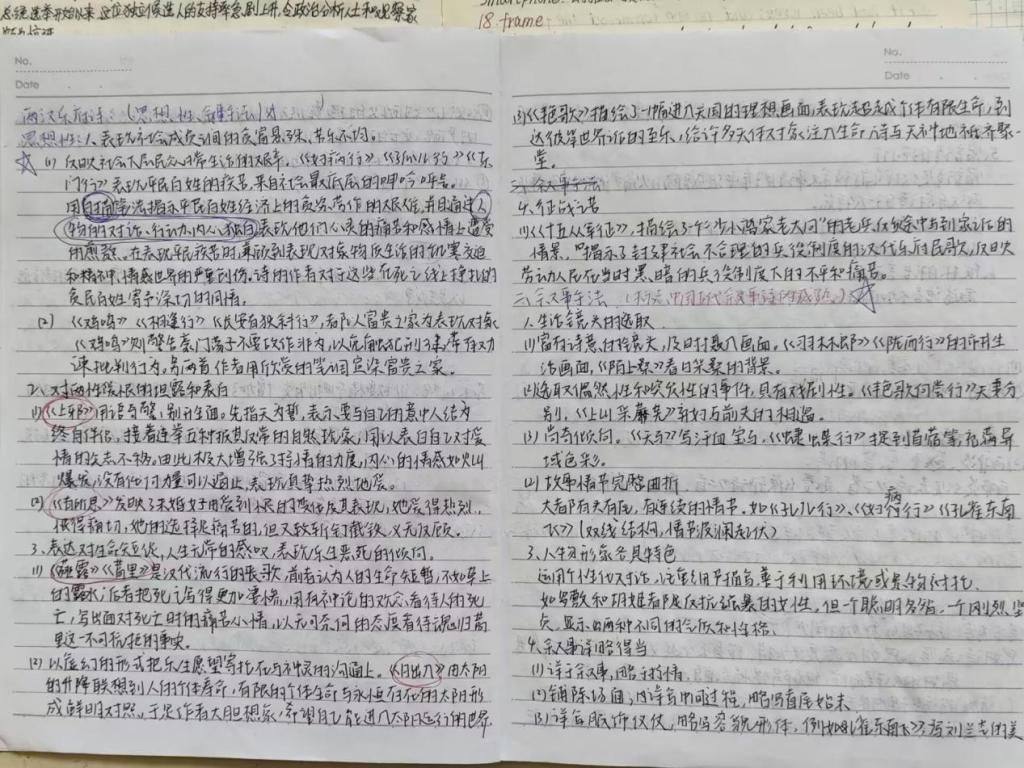 总统选举开始以来,这位独立候选人的支持率急剧上升,令政治分析人士和观察家
18. frame
No.
Date
两汉乐府诗:(思想性、叙事法)
思想性:1、表现社会成员之间的贫富悬殊、苦乐不均。
(1) 反映社会下层民众日常生活的艰辛。《妇病行》《孤儿行》《东
门行》表现平民百姓的疾苦,来自社会最底层的呻吟呼号。
用白描手法揭示平民百姓经济上的贫穷,劳作的艰难,并且通过人
物的对话、行动、内心独白表现他们心灵的痛苦和感情上遭受
的煎熬。在表现平民疾苦时,兼顾到表现对象物质生活的饥寒交迫
和精神、情感世界的严重创伤。诗的作者对于这些在死亡线上挣扎的
贫民百姓寄予深切的同情。
(2) 《鸡鸣》《相逢行》《长安有狭斜行》,都以富贵之家为表现对象,
《鸡鸣》则警告豪门荡子不要胡作非为,以免触犯刑律,带有劝
谏批判行为。另两首作者用欣赏的笔调渲染富贵之家。
2、对两性爱恨的坦露和表白
(1) 《上邪》用语奇警,别开生面。先指天为誓,表示要与自己的意中人结为
终身伴侣。接着连举五种极其反常的自然现象,用以表白自己对爱
情的矢志不移。由此极大增强了抒情的力度,内心的情感如火山
爆发,没有任何力量可以遏止,表现真挚热烈地爱。
(2) 《有所思》反映了未婚女子由爱到恨的变化及其表现,她爱得热烈,
恨得痛切,她的选择是痛苦的,但又斩钉截铁,义无反顾。
3、表达对生命短促,人生无常的感叹,表现乐生恶死的倾向。
(1) 《薤露》《蒿里》是汉代流行的丧歌,前者认为人的生命短暂,不如草上
的露水;后者把死亡写得更加凄惨,用有神论的观念看待人的死
亡,写出面对死亡时的痛苦心情,以无可奈何的态度看待魂归蒿
里这一不可抗拒的事实。
(2) 以虚幻的形式把乐生愿望寄托在与神灵的沟通上。《日出入》由太阳
的升降联想到人的个体寿命,有限的个体生命与永恒存在的太阳形
成鲜明对照,于是作者大胆想象,希望自己能进入太阳运行的世界。
No.
Date
(3) 《艳歌》描绘了一幅进入天国的理想画面,表现超越个体有限生命,到
达彼岸世界后的至乐,给许多天体对象注入生命,诗与天神地祇齐聚一
堂。
二、叙事手法
4、征战之苦
(1) 《十五从军征》,描绘了一个"少小离家老大回"的老兵返回途中与到家之后的
情景,揭示了封建社会不合理的兵役制度的汉代乐府民歌,反映
劳动人民在当时黑暗的兵役制度下的不平和痛苦。
二、叙事手法(标志中国古代叙事诗的成熟。)
1、生活镜头的选取
(1) 富有诗意的镜头,及时摄入画面。《羽林郎》《陇西行》的市井生
活画面,《陌上桑》春日采桑的背景。
(2) 选取偶然性和突发性的事件,具有戏剧性。《艳歌何尝行》夫妻分
别,《上山采蘼芜》弃妇与前夫的相遇。
(3) 尚奇倾向。《天马》写汗血宝马,《蜨蝶行》
域色彩。
(2) 故事情节完整曲折
大都有头有尾,有连续的情节,如《孤儿行》、《妇病行》《孔雀东南
飞》(双线结构,情节波澜起伏)
3、人物形象各具特色
运用个性化对话,注重细节描写,善于利用环境或景物衬托。
如罗敷和胡姬都是反抗强暴的女性,但一个聪明多智,一个刚烈坚
贞,显示出两种不同的气质和性格。
4、叙事详略得当
(1) 详于叙事,略于抒情
(2) 铺陈场面,详写中间过程,略写首尾始末
(3) 详写服饰仪仗,略写容貌形体,例如《孔雀东南飞》写刘兰芝的美